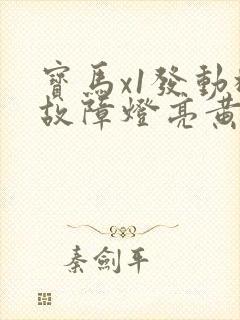 寶馬x1發動
故障燈亮黃
秦劍平